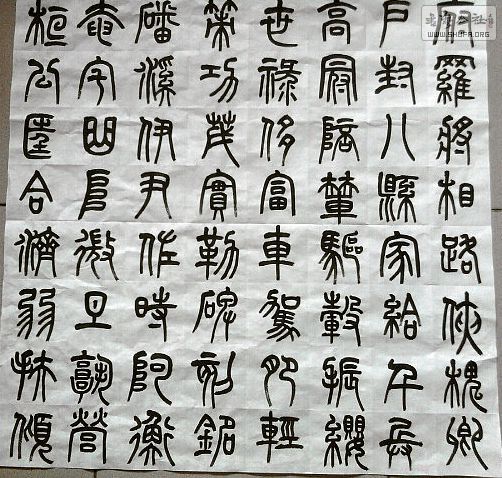 府羅將相路俠槐卿
戶封八縣家給千兵
高冠陪輦驅轂振纓
世祿侈富車駕肥輕
策功茂實勒碑刻銘
磻溪伊尹佐時阿衡
奄宅曲阜微旦孰營
桓公匡合濟弱扶傾
WWW.SHUFA.ORG